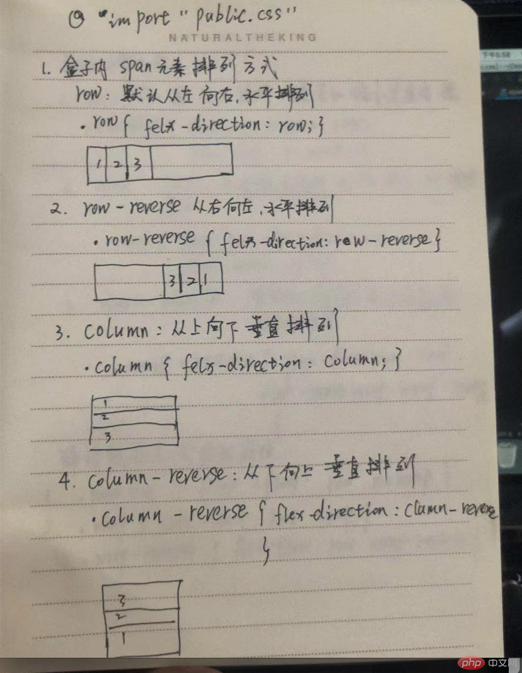 @ "import "public.css"
NATURALTHEKING
1. 盒子内 span元素排列方式
row: 默认从左向右,水平排列
.row{ felx-direction: row; }
1 2 3
2. row-reverse 从右向左,水平排列
.row-reverse { felx-direction: row-reverse }
3 2 1
3. column: 从上向下 垂直排列
.column { felx-direction: column; }
1
2
3
4. column-reverse: 从下向上 垂直排列
.column-reverse { flex-direction: clumn-reverse
}
3
2
1
下午6:58
php 中文网